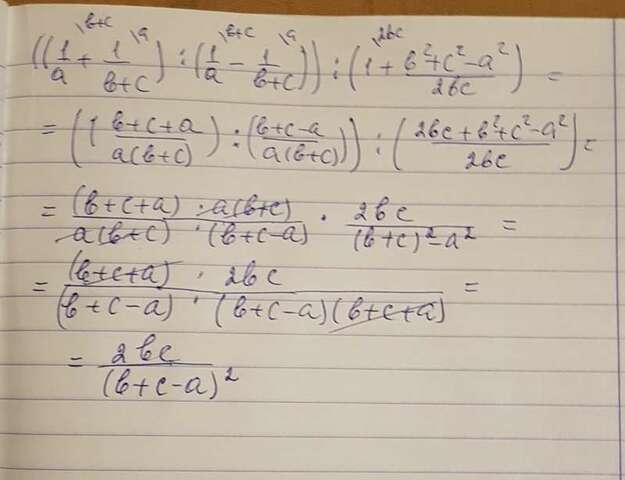 ((1/a \b+c + 1/(b+c) \a) : (1/a \b+c - 1/(b+c) \a)) : (1 \2bc + (b²+c²-a²)/2bc) =
= ((b+c+a)/(a(b+c)) : (b+c-a)/(a(b+c))) : ((2bc+b²+c²-a²)/2bc) =
= ((b+c+a) · a(b+c))/(a(b+c) · (b+c-a)) · 2bc/((b+c)²-a²) =
= ((b+c+a) · 2bc)/((b+c-a) · (b+c-a)(b+c+a)) =
= 2bc/(b+c-a)²